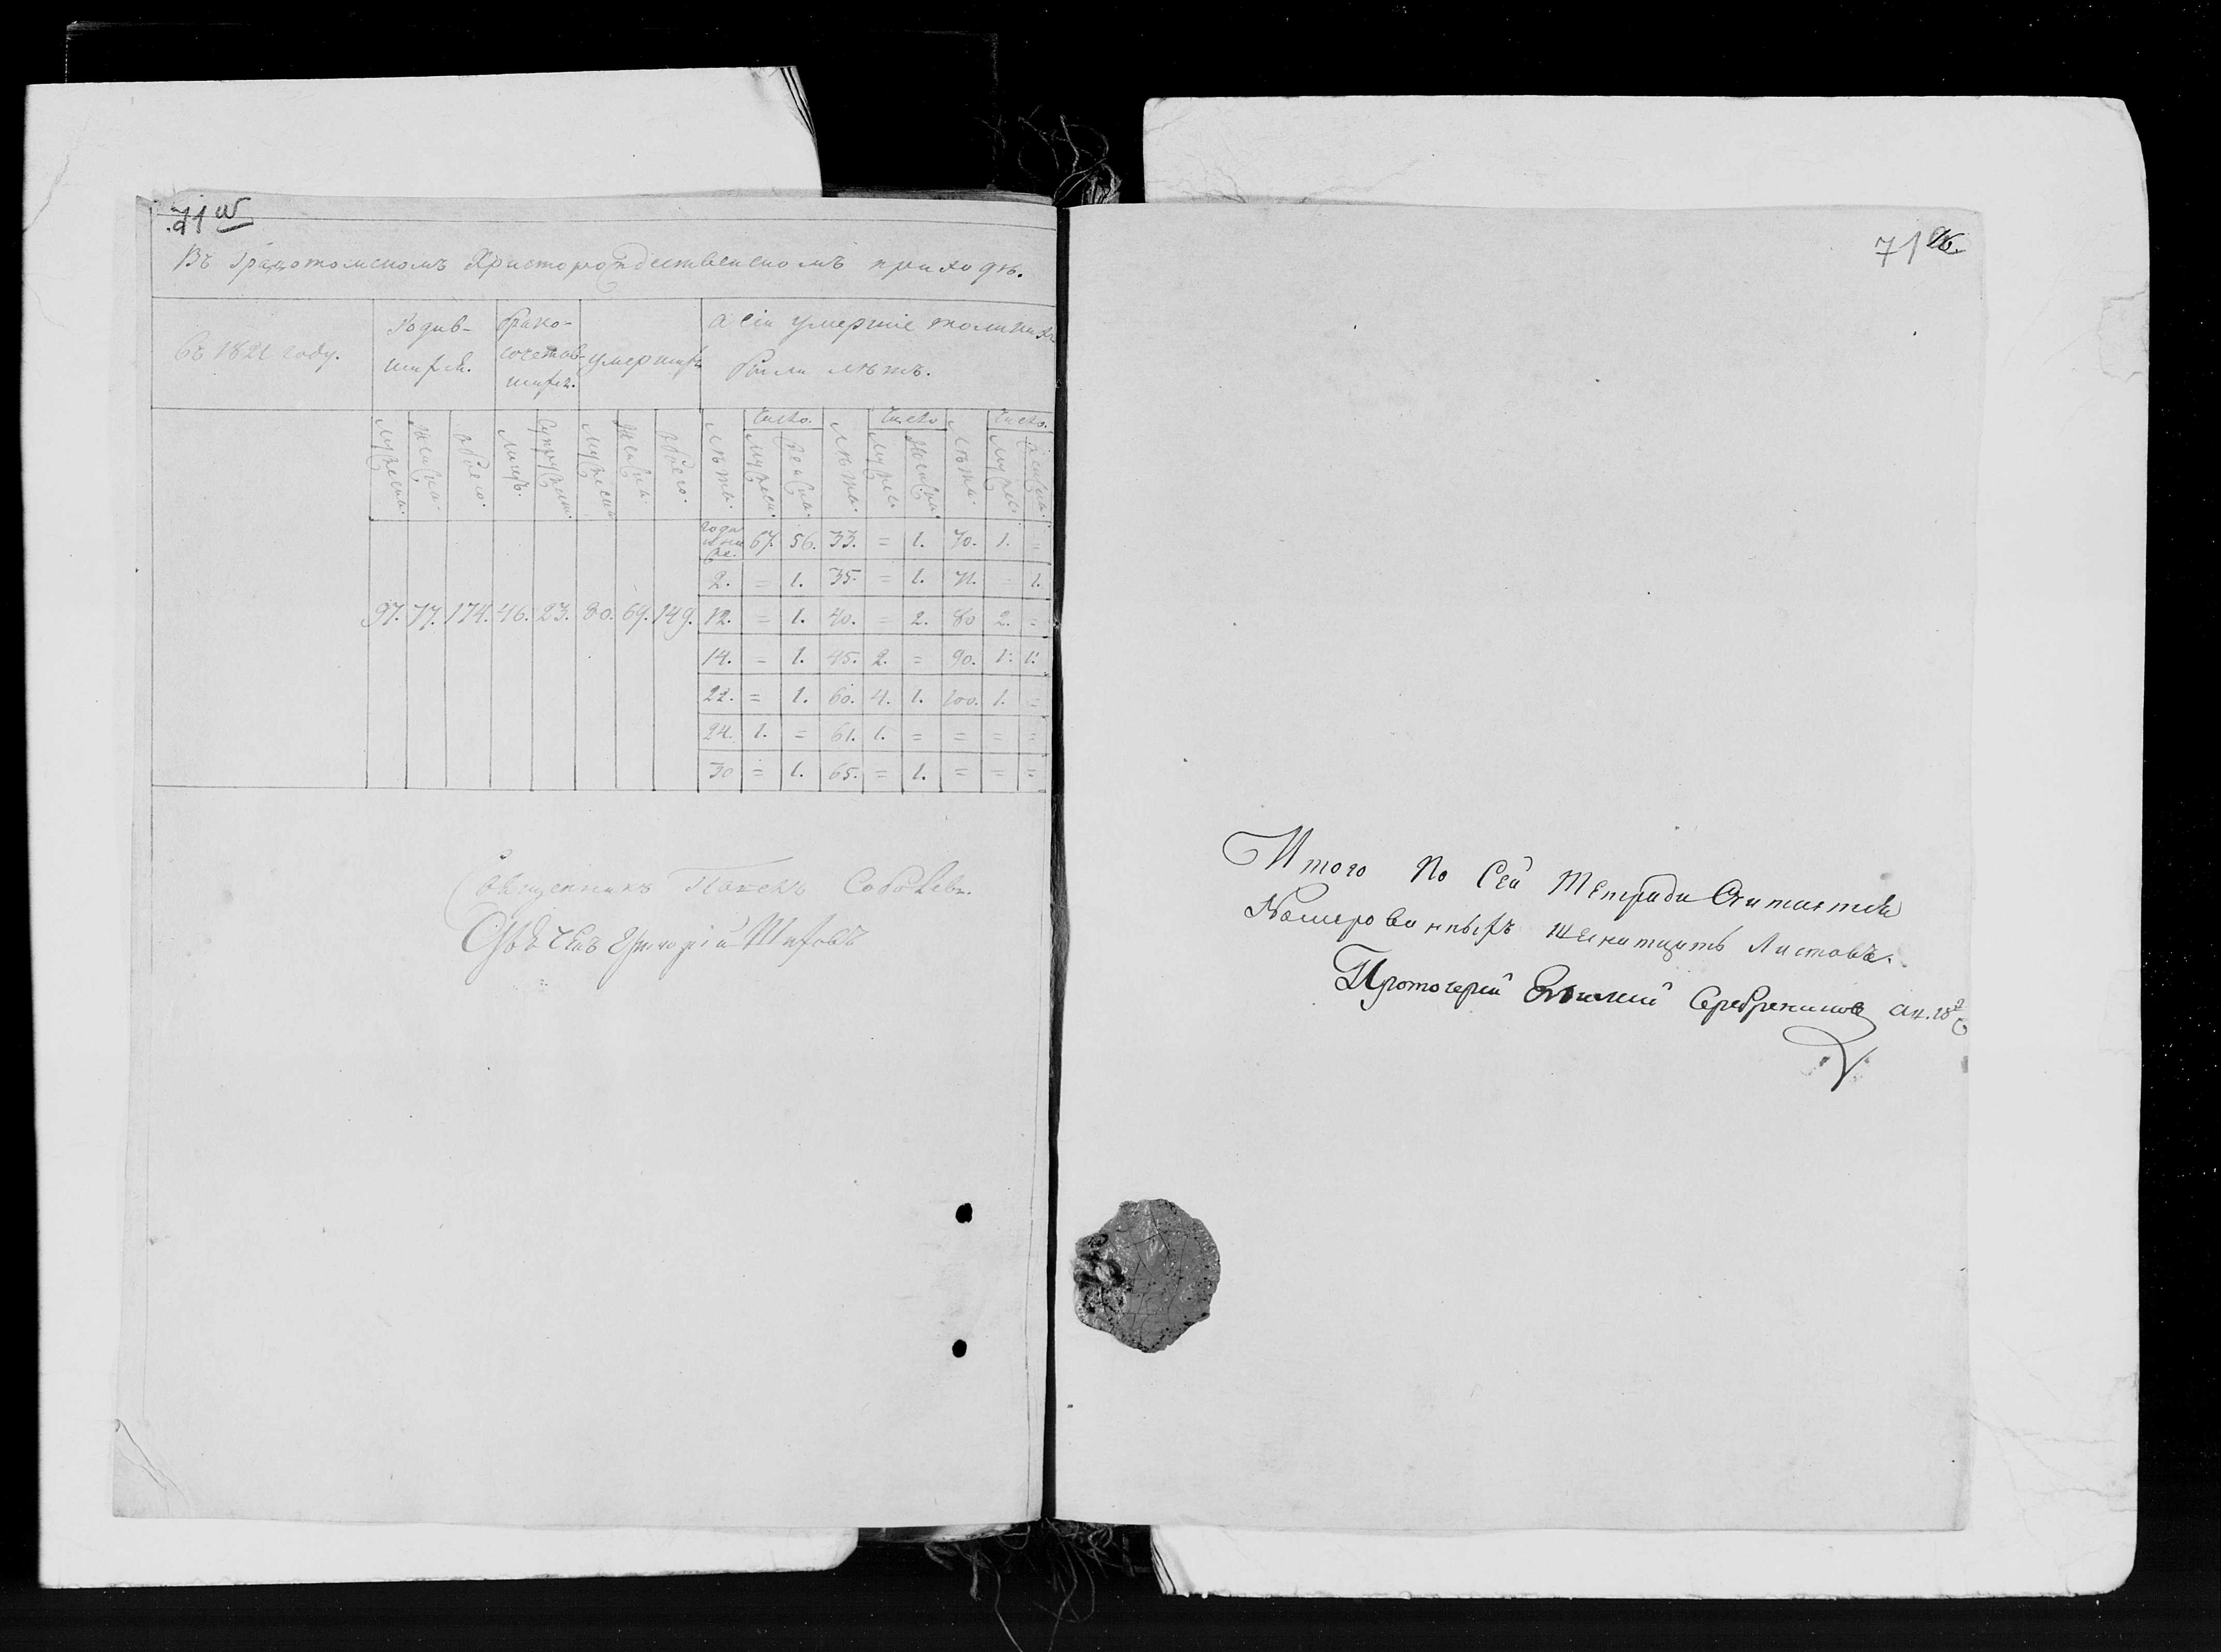 71 об
Въ градотомскомъ Христорождественскомъ приходѣ.
въ 1821 году.
Родив-
шихся.
брако-
сочетав-
шихся.
умершихъ
а сіи умершіе толикихъ
были лѣтъ.
мужеска. женска. обоего. лицъ. супружеш. мужеска женска. обоего. лѣты. число. мужеск. женска. лѣты. число мужес. женска. лѣты. число. мужес. женска.
97. 77. 174. 46. 23. 80. 69. 149.
года и ни же. 67. 56. 33. = 1. 70. 1. =
2. = 1. 35. = 1. 71. = 1.
12. = 1. 40. = 2. 80 2. =
14. = 1. 45. 2. = 90. 1. 1.
22. = 1. 60. 4. 1. 100. 1. =
24. 1. = 61. 1. = = = =
30 = 1. 65. = 1. = = =
Священникъ Соболевъ.
Дьячекъ Григорій
71
Итого По Сей Тетради Считается
Номерованныхъ Листовъ.
Протоіерей Серебрениковъ